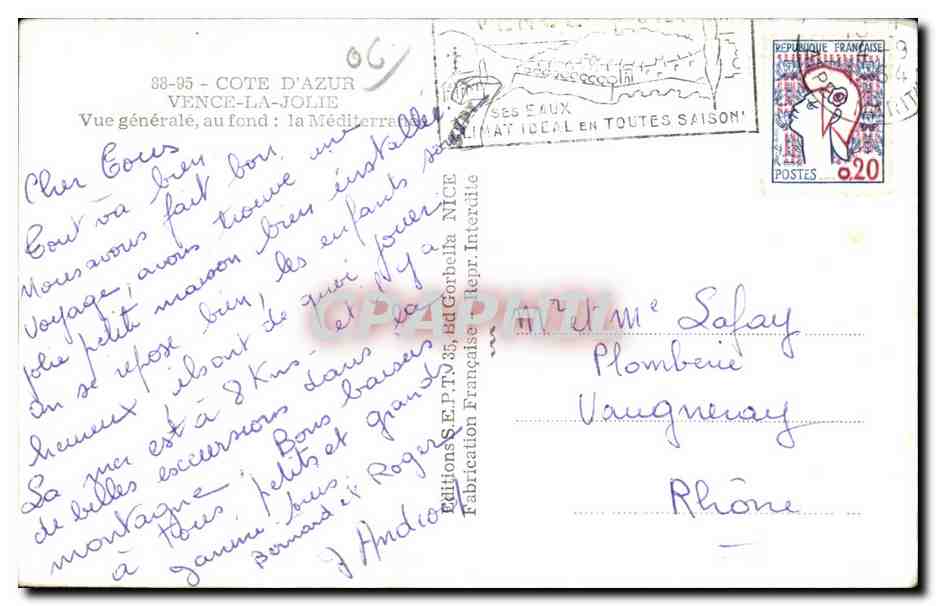 06
88-95 - COTE D'AZUR
VENCE-LA-JOLIE
Vue générale, au fond : la Méditerranée
Cher Tous
Tout va bien
Nous avons fait bon
voyage, avons trouvé une
jolie petite maison bien installée
on se repose bien, les enfants sont
heureux ils ont de quoi jouer
La mer est à 8 Kms et il y a
de belles excursions dans la
montagne. Bons baisers
à tous, petits et grands
Janine
Bernard et Roger
J Andriot
Editions S.E.P.T., 35, Bd Gorbella NICE
Fabrication Française - Repr. Interdite
SES EAUX
CLIMAT IDEAL EN TOUTES SAISONS
REPUBLIQUE FRANÇAISE
POSTES 0,20
CPAPHIL
Mr et Me Lafay
Plomberie
Vaugneray
Rhône